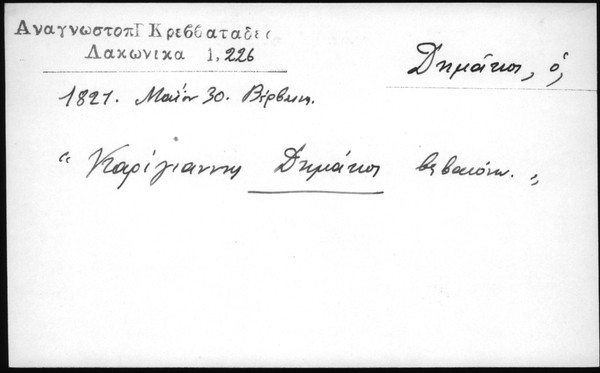 ΑναγνωστοπΓ Κρεββαταδες
Λακωνικα 1, 226
Δημάκοι, ὁ,
1821. Μαΐου 30. Βέρβενα.
“ Καρίγιαννης Δημάκοι βεβαιόνω. „